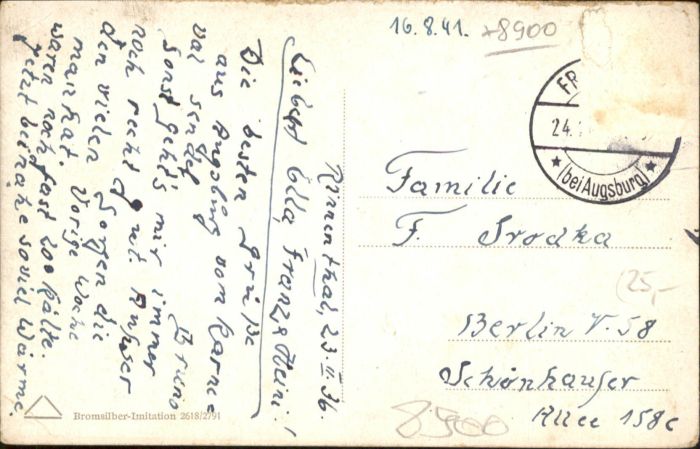 16.8.41. *8900
Rinnenthal, 23.II.36.
Liebes Ella, Franz & Heini!
Die besten Grüße
aus Augsburg vom Karne
val sendet Bruno
Sonst geht's mir immer
noch recht gut außer
den vielen Sorgen die
man hat. Vorige Woche
waren noch fast 20° Kälte.
Jetzt beinahe soviel Wärme.
FR
24.
(bei Augsburg)
Familie
F. Srodka
25,-
Berlin N. 58
Schönhauser
Allee 158c
8900
Bromsilber-Imitation 2618/2791